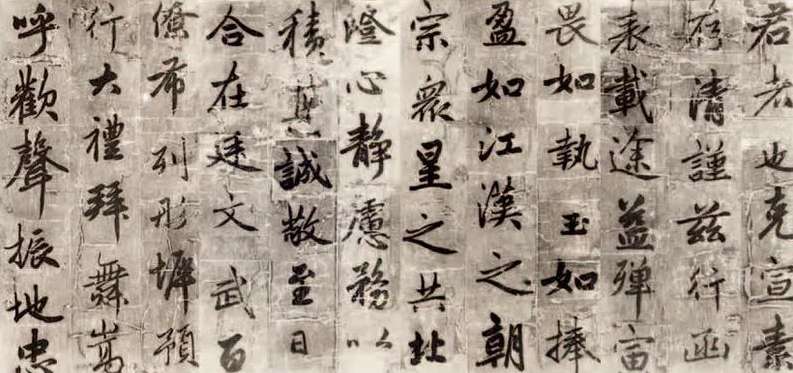 君者也克宣素
存清謹茲行函
表載途益殫寅
畏如執玉如捧
盈如江漢之朝
宗眾星之共北
澄心靜慮務以
積其誠敬至日
合在廷文武百
僚布列彤墀預
行大禮拜舞嵩
呼歡聲振地忠